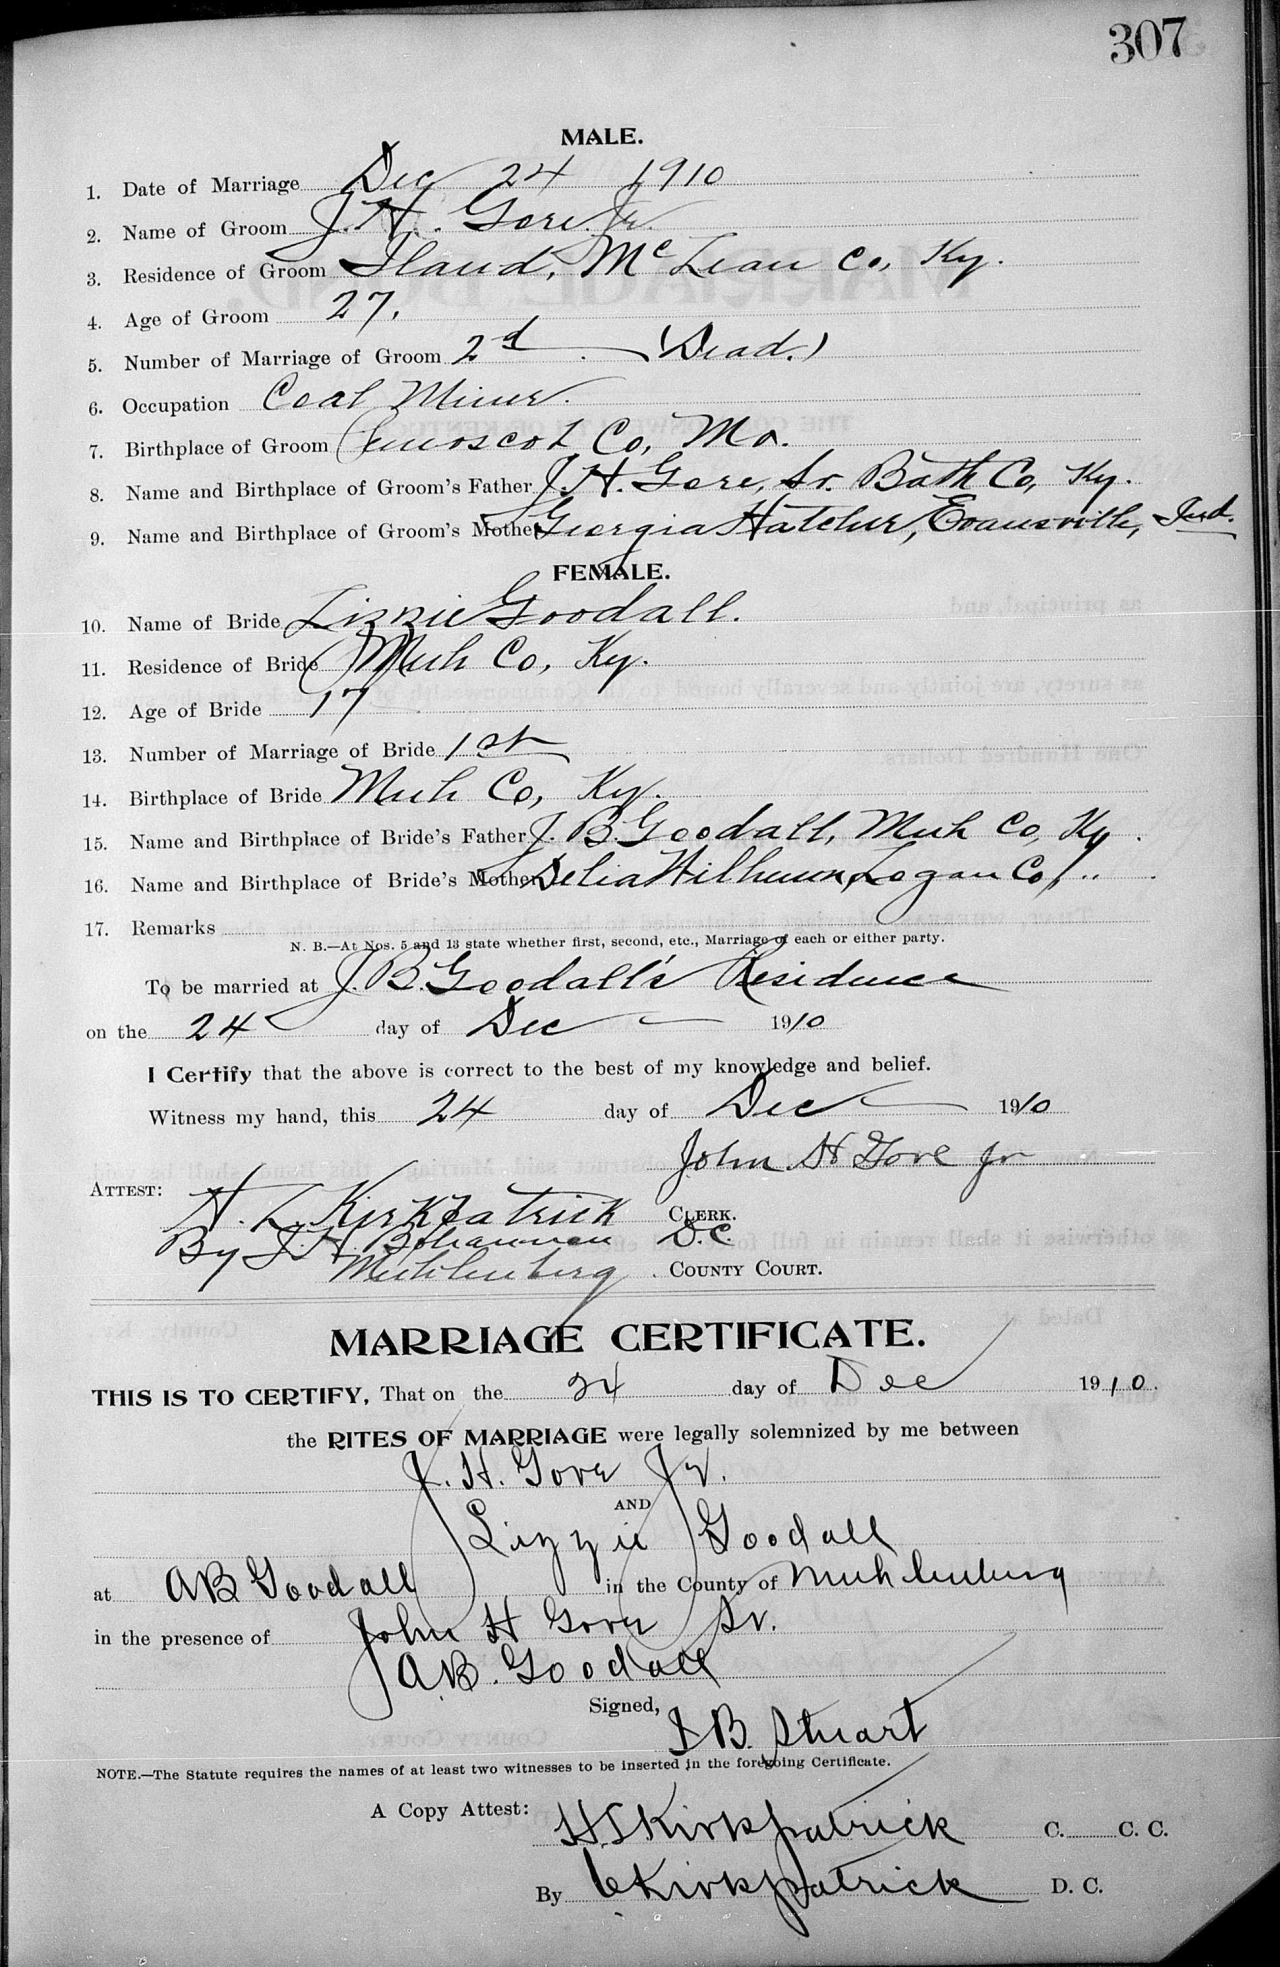 307
MALE.
1. Date of Marriage Dec 24 1910
2. Name of Groom J. H. Gore Jr.
3. Residence of Groom Iland, McLean Co, Ky.
4. Age of Groom 27.
5. Number of Marriage of Groom 2d (Dead.)
6. Occupation Coal Miner.
7. Birthplace of Groom Co, Mo.
8. Name and Birthplace of Groom's Father J. H. Gore, Sr. Bath Co, Ky.
9. Name and Birthplace of Groom's Mother Georgia Hatcher, Evansville, Ind.
FEMALE.
10. Name of Bride Lizzie Goodall.
11. Residence of Bride Muh Co, Ky.
12. Age of Bride 17
13. Number of Marriage of Bride 1st
14. Birthplace of Bride Muh Co, Ky.
15. Name and Birthplace of Bride's Father J. B. Goodall, Muh Co, Ky.
16. Name and Birthplace of Bride's Mother Delia Logan Co, "
17. Remarks
N. B.—At Nos. 5 and 13 state whether first, second, etc., Marriage of each or either party.
To be married at J. B. Goodall's Residence
on the 24 day of Dec 1910
I Certify that the above is correct to the best of my knowledge and belief.
Witness my hand, this 24 day of Dec 1910
John H Gore Jr
ATTEST:
H. L. Kirkpatrick CLERK.
By J. H. Bohannon D.C.
Muhlenberg COUNTY COURT.
MARRIAGE CERTIFICATE.
THIS IS TO CERTIFY, That on the 24 day of Dec 1910.
the RITES OF MARRIAGE were legally solemnized by me between
J. H. Gore Jr.
AND
Lizzie Goodall
at AB Goodall in the County of Muhlenburg
in the presence of John H Gore Sr.
A.B. Goodall
Signed,
J B. Stuart
NOTE.—The Statute requires the names of at least two witnesses to be inserted in the foregoing Certificate.
A Copy Attest: H L Kirkpatrick C. C. C.
By C Kirkpatrick D. C.